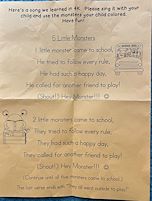 Here's a song we learned in 4K. Please sing it with your
child and use the monsters your child colored.
Have fun!
5 Little Monsters
1 little monster came to school,
He tried to follow every rule,
He had such a happy day,
He called for another friend to play!
(Shout!): Hey Monster!!!
2 little monsters came to school,
They tried to follow every rule,
They had such a happy day,
They called for another friend to play!
(Shout!): Hey Monster!!!
(Continue until all five monsters came to school.)
The last verse ends with "They all went outside to play!"